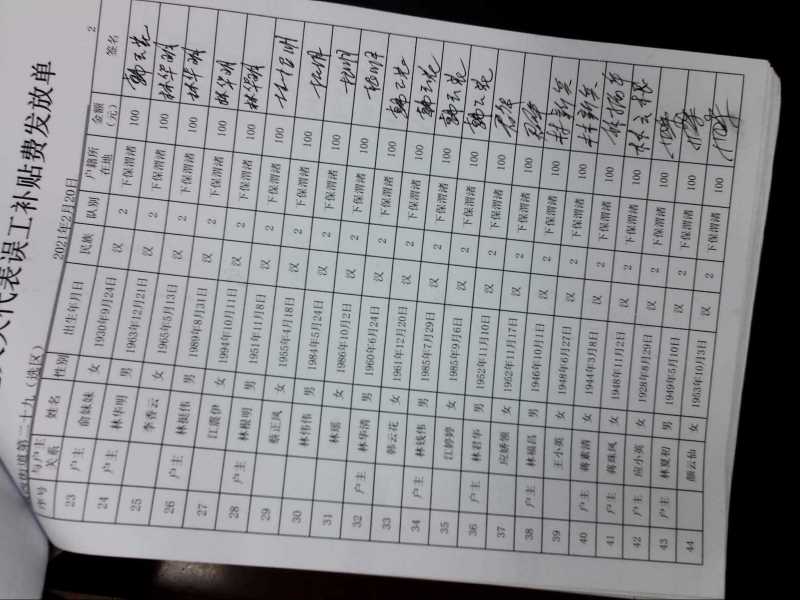 大代表误工补贴费发放单
街道第二十九（选区） 2021年2月20日 2
序号 与户主关系 姓名 性别 出生年月日 民族 队别 户籍所在地 金额（元） 签名
23 户主 俞妹妹 女 1930年9月24日 汉 2 下保渭渚 100 韩云花
24 户主 林华明 男 1963年12月21日 汉 2 下保渭渚 100 林华明
25 李香云 女 1965年5月13日 汉 2 下保渭渚 100 林华明
26 户主 林挺伟 男 1989年8月31日 汉 2 下保渭渚 100 林华明
27 江露伊 女 1994年10月11日 汉 2 下保渭渚 100 林华明
28 户主 林根明 男 1951年11月8日 汉 2 下保渭渚 100
29 蔡正凤 女 1955年4月18日 汉 2 下保渭渚 100
30 林伟伟 男 1984年5月24日 汉 2 下保渭渚 100
31 林瑶 女 1986年10月2日 汉 2 下保渭渚 100
32 户主 林华清 男 1960年6月24日 汉 2 下保渭渚 100 韩云花
33 韩云花 女 1961年12月20日 汉 2 下保渭渚 100 韩云花
34 户主 林钱伟 男 1985年7月29日 汉 2 下保渭渚 100 韩云花
35 江婷婷 女 1985年9月6日 汉 2 下保渭渚 100 韩云花
36 户主 林君华 男 1952年11月10日 汉 2 下保渭渚 100
37 应娇领 女 1952年11月17日 汉 2 下保渭渚 100
38 户主 林福昌 男 1946年10月1日 汉 2 下保渭渚 100
39 王小英 女 1948年6月27日 汉 2 下保渭渚 100
40 户主 蒋素清 女 1944年3月8日 汉 2 下保渭渚 100
41 户主 蒋珠凤 女 1948年11月2日 汉 2 下保渭渚 100
42 户主 应小英 女 1928年8月29日 汉 2 下保渭渚 100
43 户主 林夏初 男 1949年5月10日 汉 2 下保渭渚 100
44 颜云仙 女 1953年10月3日 汉 2 下保渭渚 100